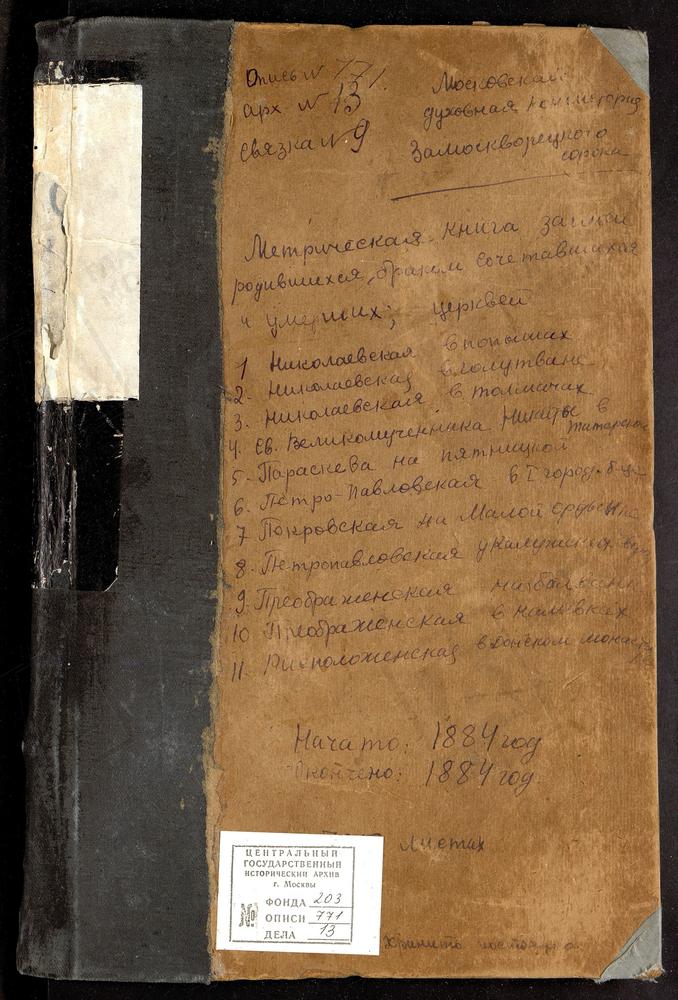 Опись № 771.
арх № 13
связка № 9
Московская
духовная консистория
Замоскворецкого
сорока
Метрическая книга записи
родившихся, браком сочетавшихся
и умерших; церквей
1 Николаевская в пыжах
2. Николаевская в голутвине
3. Николаевская в толмачах
4. Св. Великомученика Никиты в
татарской
5. Параскева на пятницкой
6. Петро-Павловская в I город. б-це
7 Покровская на Малой ордынке
8. Петропавловская у калужских
9. Преображенская на болване
10 Преображенская в наливках
11 Ризположенская в донском монаст
Начато: 1884 год
Окончено: 1884 год.
листах
ЦЕНТРАЛЬНЫЙ
ГОСУДАРСТВЕННЫЙ
ИСТОРИЧЕСКИЙ АРХИВ
г. Москвы
ФОНДА 203
ОПИСИ 771
ДЕЛА 13
Хранить постоянно